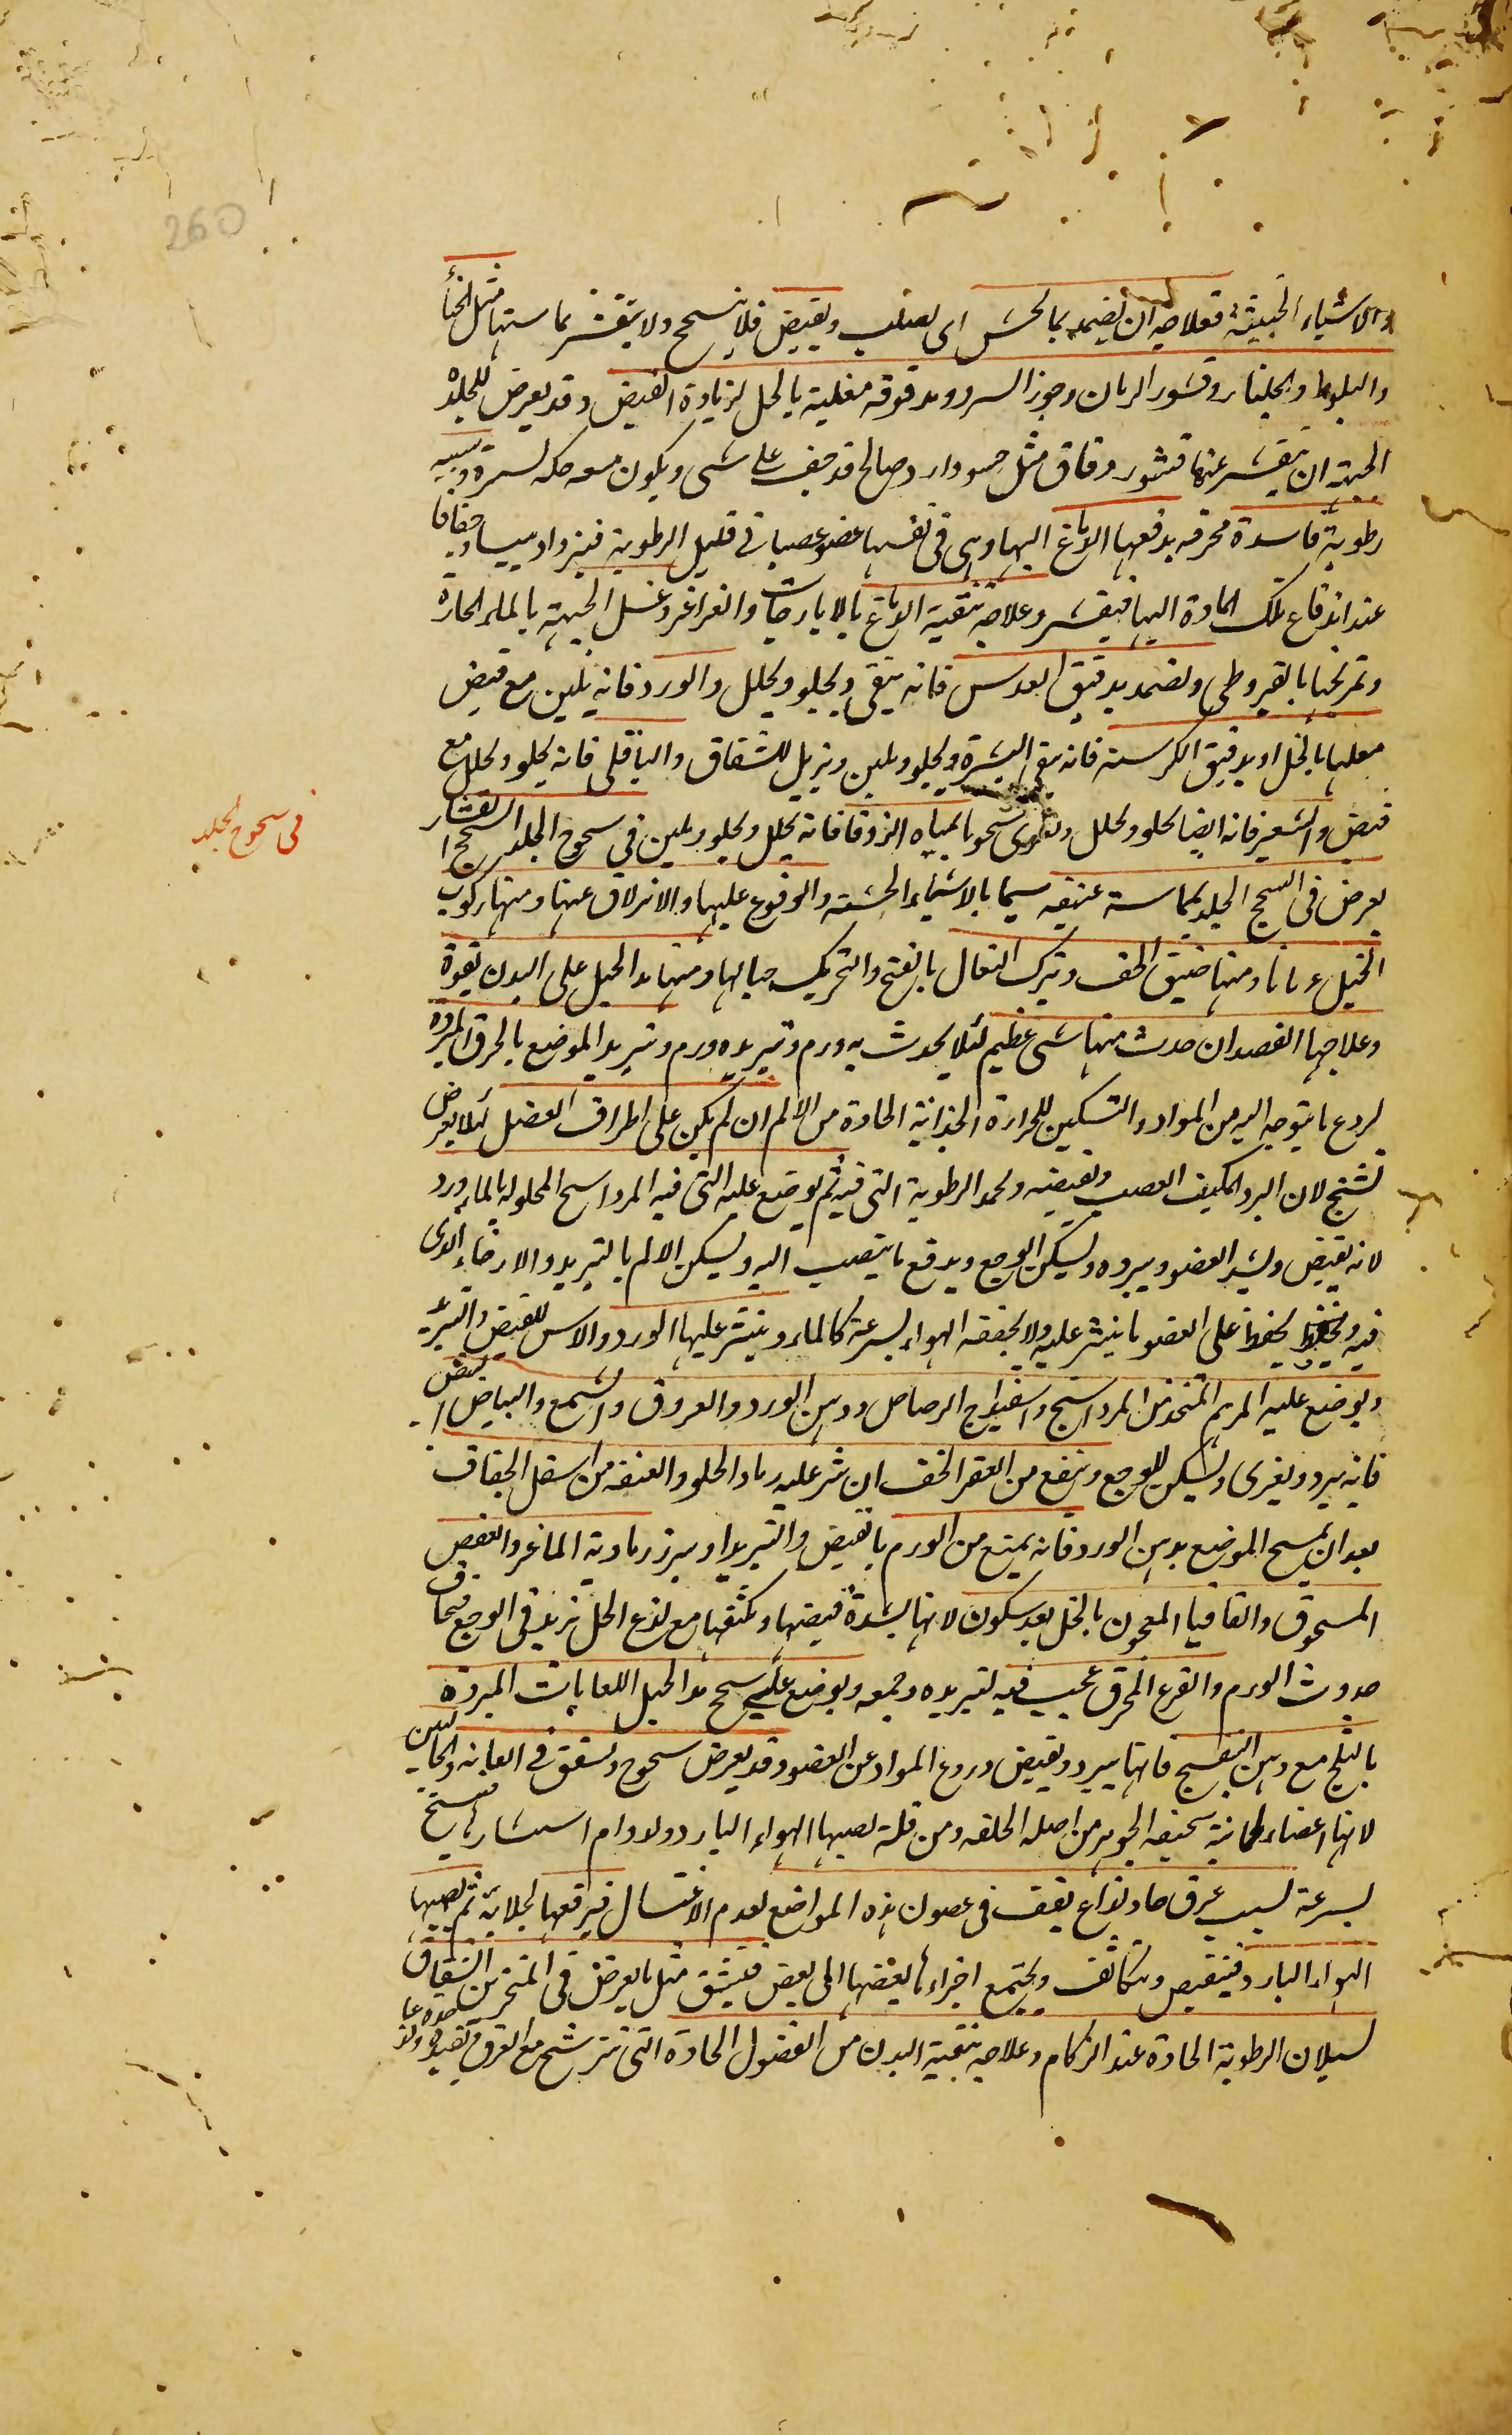 260
والاشياء الخبيثة فعلاجه ان يضمد بما يخشن اى يصلب ويقبض فلا ينسحج ولا يتقشر بما ستها مثل الحنأ
والبلوط والجلنار وقشور الرمان وجوز السرو مدقوقه مغلية بالخل لزيادة القبض وقد يعرض للجلد
الجبهة ان يتقشر عنها قشور رقاق مثل دار وصالح قد جف على شى ويكون معه حكه وسببه
رطوبة فاسدة محرقه يدفعها الدماغ اليها وهى فى نفسها عضو عصبانى قليل الرطوبة فيزداد يبسا وجفافا
عند اندفاع تلك المادة اليها فيقشر وعلاجه تنقية الدماغ بالايارجات والغراغر وغسل الجبهة بالماء الحارة
وتمريخها بالقيروطى وتضمد بدقيق العدس فانه ينقى ويجلو ويحلل والورد فانه يلين مع قبض
مغليا بالخل او بدقيق الكرسنه فانه ينقى البشرة ويجلو ويلين ويزيل للشقاق والباقلى فانه يجلو ويحلل مع
قبض والشعير فانه ايضا يجلو ويحلل بمياه الزوفا فانه يحلل ويجلو ويلين فى سحوج الجلد السحج انقشار
فى سحوج الجلد
يعرض فى السحج الجلد بمماسة عنيفه سيما بالاشياء الخشنه والوقوع عليها والانزلاق عنها ومنها ركوب
الخيل عريانا ومنها ضيق الخف وشرك النعال بالفتح والتحريك حبالها ومنها مد الحبل على البدن بقوة
وعلاجها الفصد ان حدث منها شى عظيم لئلا يحدث به ورم وتبريده ورم وتبريد الموضع بالخرق المبرده
لردع ما يتوجه اليه من المواد والتسكين للحرارة الحادة من الالم ان لم يكن على اطراف العضل لئلا يعرض
تشنج لان البرد يكثف العصب ويقبضه ويجمد الرطوبة التى فيه ثم يوضع عليه التى فيه المرداسنج المحلوله بالماء ورد
لانه يقبض ويشد العضو ويبرده ويسكن الوجع ويدفع ما ينصب اليه ويسكن الالم بالتبريد والارخاء الذى
فيه ويحفظ على العضو ما ينثر عليه ولا يجففه الهواء بسرعة كالماء وينثر عليها الورد والاس للقبض والتبريد
ويوضع عليه المرهم المتخذ من المرداسنج واسفيداج الرصاص ودهن الورد والعروق والشمع والبياض البيض
فانه يبرد ويغرى ويسكن للوجع وينفع من العقر الخف ان نثر عليه رماد الجلود العتقه من اسفل الخفاف
بعد ان يمسح الموضع بدهن الورد فانه يمنع من الورم بالقبض والتبريد والعفص
المسحوق والقاقيا المعجون بالخل بعد سكون لانها بشدة قبضها وتكثفها مع لذع الخل تزيد فى الوجع فيخاف
حدوث الورم والقرع المحرق عجيب فيه لتبريده وجمعه ويوضع على سحج مد الحبل اللعابات المبردة
بالثلج مع دهن البنفسج فانها يبرد ويقبض وردع المواد عن العضو وقد يعرض سحوج وتشقق فى العانه والحالبين
لانها اعضاء لحمانية سخيفه الجوهر من اصله الخلقه ومن قلة تصيبها الهواء البارد
بسرعة بسبب عرق حاد لذاع يقف فى غضون هذه المواضع لعدم الاغتسال ثم يصيبها
الهواء البارد فينقبض ويتكاثف ويجتمع اجزاءها بعضها الى بعض فينشق مثل ما يعرض فى المنخرين الشقاق
لسيلان الرطوبة الحادة عند الزكام وعلاجه تنقية البدن من الفضول الحادة التى تترشح مع العرق